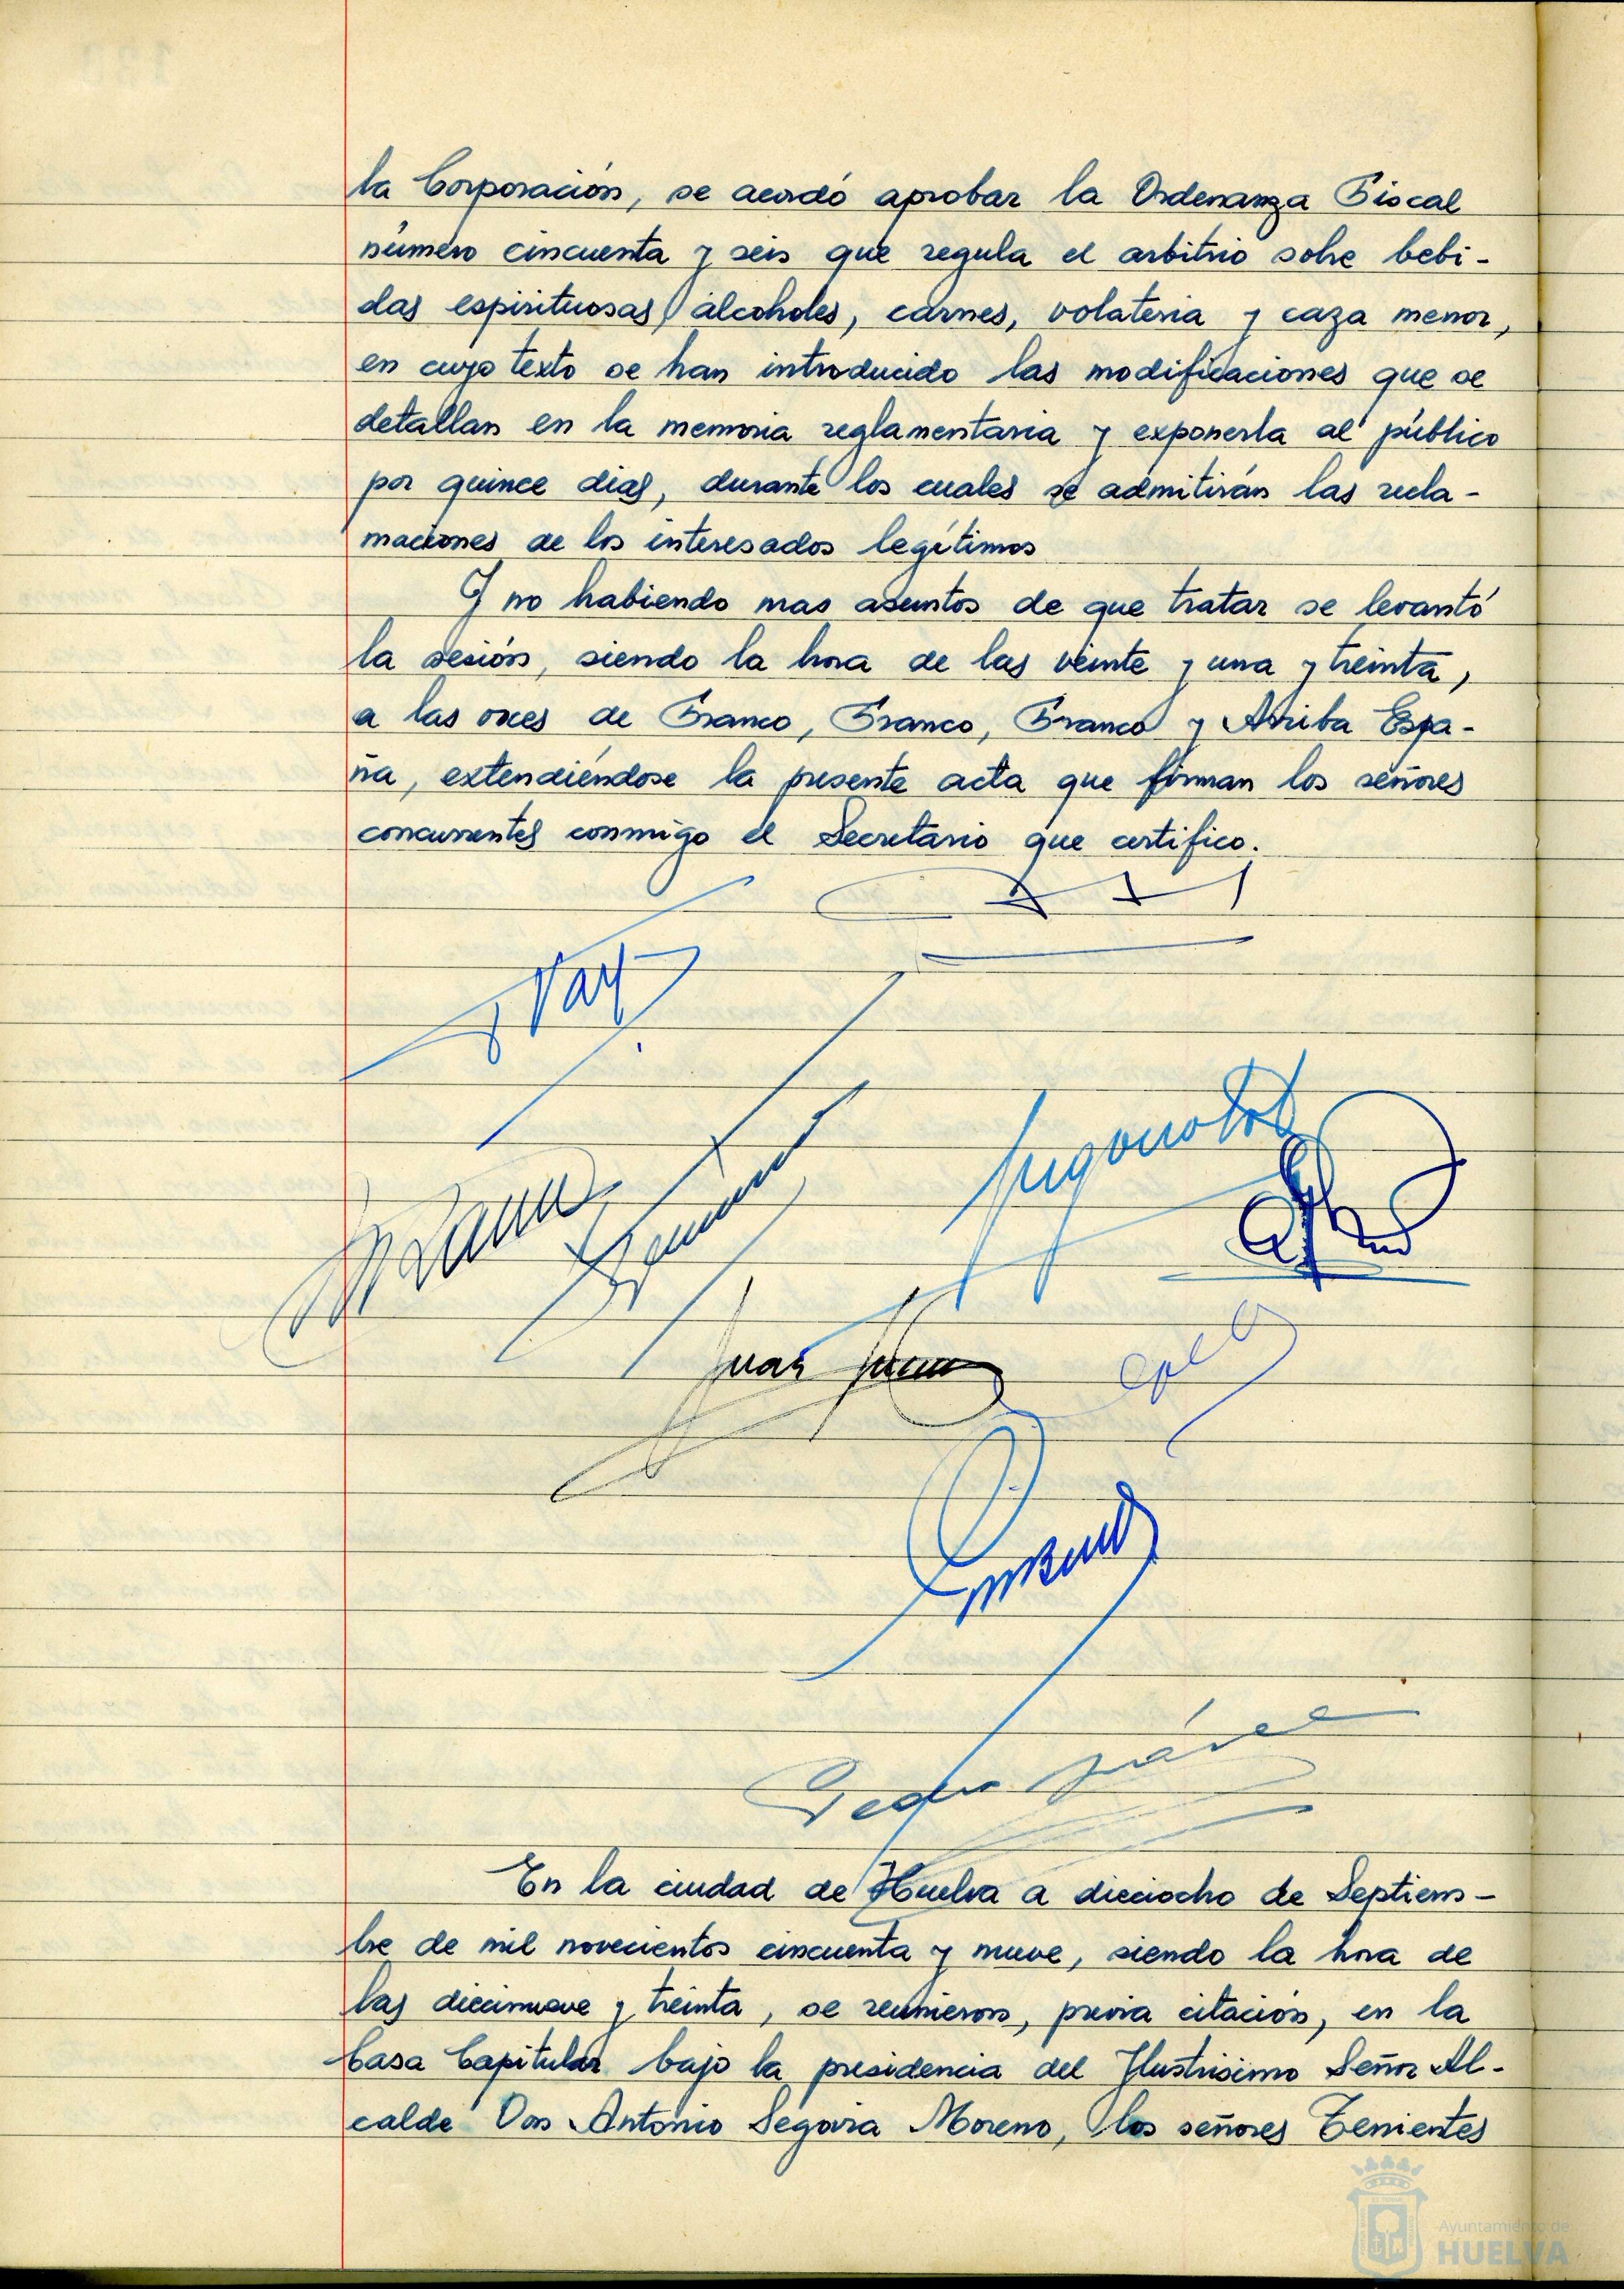 la Corporación, se acordó aprobar la Ordenanza Fiscal
número cincuenta y seis que regula el arbitrio sobre bebi-
das espirituosas, alcoholes, carnes, volateria y caza menor,
en cuyo texto se han introducido las modificaciones que se
detallan en la memoria reglamentaria y exponerla al público
por quince dias, durante los cuales se admitirán las recla-
maciones de los interesados legítimos
Y no habiendo mas asuntos de que tratar se levantó
la sesión, siendo la hora de las veinte y una y treinta,
a las voces de Franco, Franco, Franco y Arriba Espa-
ña, extendiéndose la presente acta que firman los señores
concurrentes conmigo el Secretario que certifico.
Juan
Pedro
En la ciudad de Huelva a dieciocho de Septiem-
bre de mil novecientos cincuenta y nueve, siendo la hora de
las diecinueve y treinta, se reunieron, previa citación, en la
Casa Capitular bajo la presidencia del Ilustrisimo Señor Al-
calde Don Antonio Segovia Moreno, los señores Tenientes
Ayuntamiento de
HUELVA